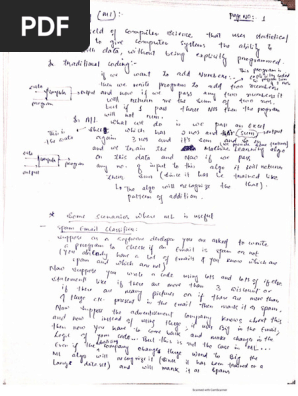 PDF
(ML) :-
PAGE NO: 1
field of computer science that uses statistical
to give computer systems the ability to
with data, without being explicitly programmed.
In traditional coding:-
if we want to add numbers:-
then we write program to add two numbers
and now if we pass any two numbers it
will return me the sum of two nos.
But if I pass three nos then the program
will not run.
In ML
What we do is we pass an excel
which has 2 nos and (sum)
again 3 nos and it's sum
and we train machine learning algo
on this data and now if we pass
any no. of input to this algo it will return
their sum (since it has be trained like
that).
The algo will recognise the
pattern of addition.
* Some Scenarios where ML is useful
- Spam Email Classifier:
Suppose as a software developer you are asked to write
a program to check if an Email is spam or not
(You already have a lot of Emails & you know which are
spam and which are not)
Now suppose you write a code using lots and lots of if else
statements like if there are more than 3 discount or
if there are many pictures or if there are more than
Huge etc. present in the Email then mark it as spam.
Now suppose the advertisement company knows about this
and now instead of using Huge, it uses Big in the Email,
then now you have to come back and make change in the
Logic of your code... But this is not the case in ML...
Even if the company changes Huge word to Big the
ML algo will recognise it (since it has been trained on a
Large dataset) and will mark it as spam.
Scanned with CamScanner